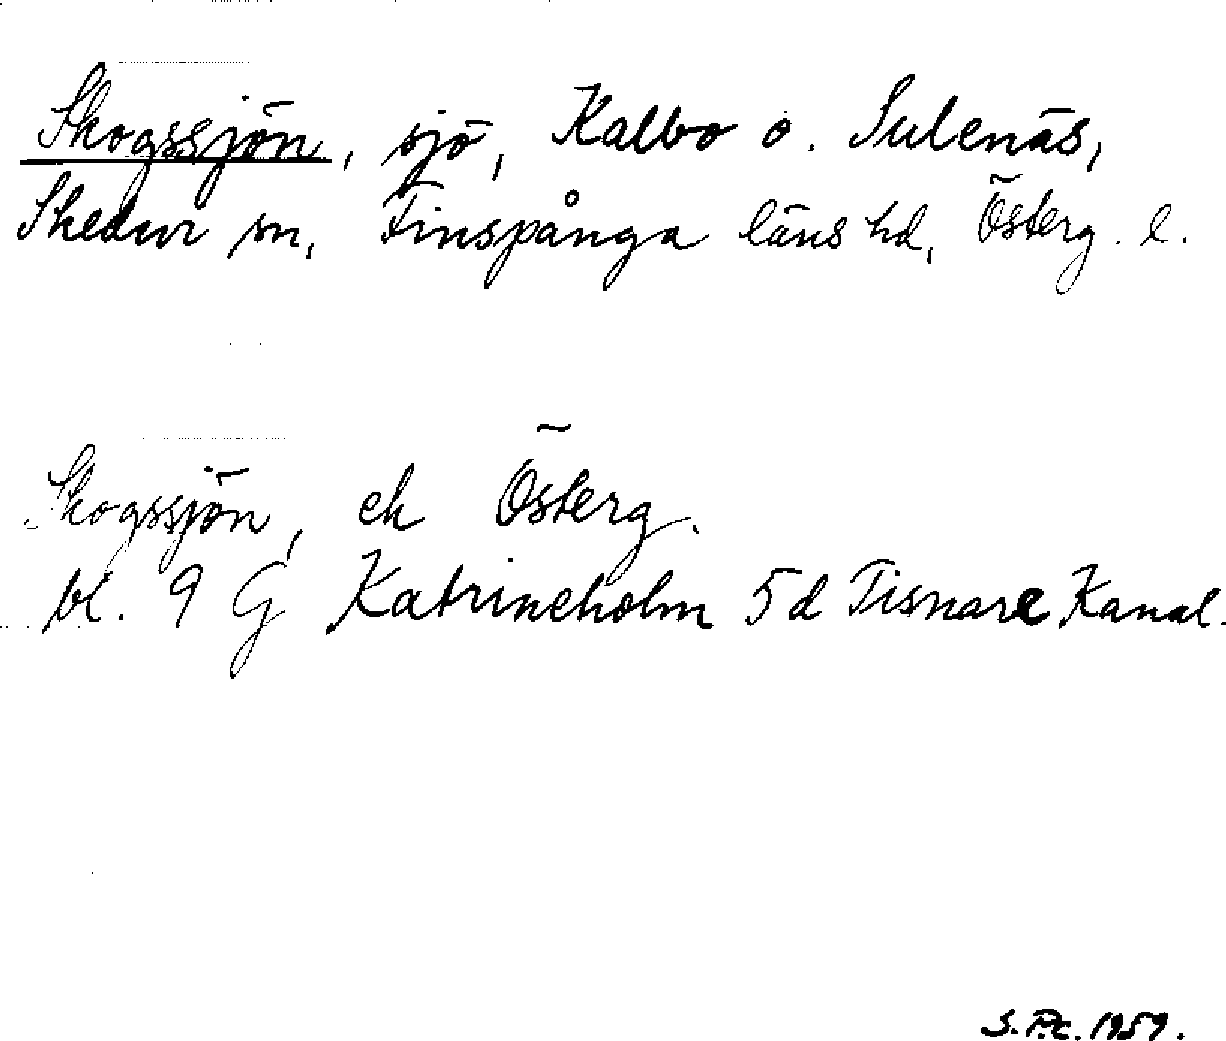 Skogssjön, sjö, Kalbo o. Sulenäs,
Skedevi sn, Finspånga läns hd, Österg. l.
Skogssjön, ek Österg.
bl. 9 G Katrineholm 5d Tisnare Kanal.
1959.